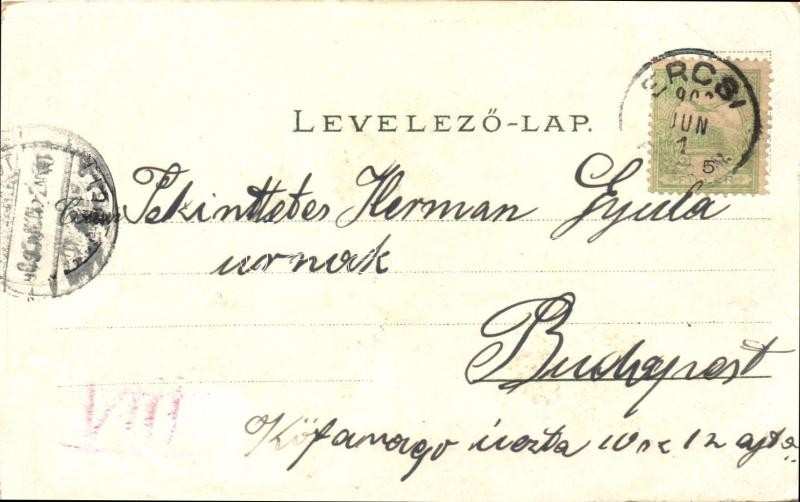 ERCSI
902
JUN
LEVELEZŐ-LAP.
Tekinttetes Herman Gyula
urnak
Budapest
VIII
Kőfaragó úczta 12 ajtó